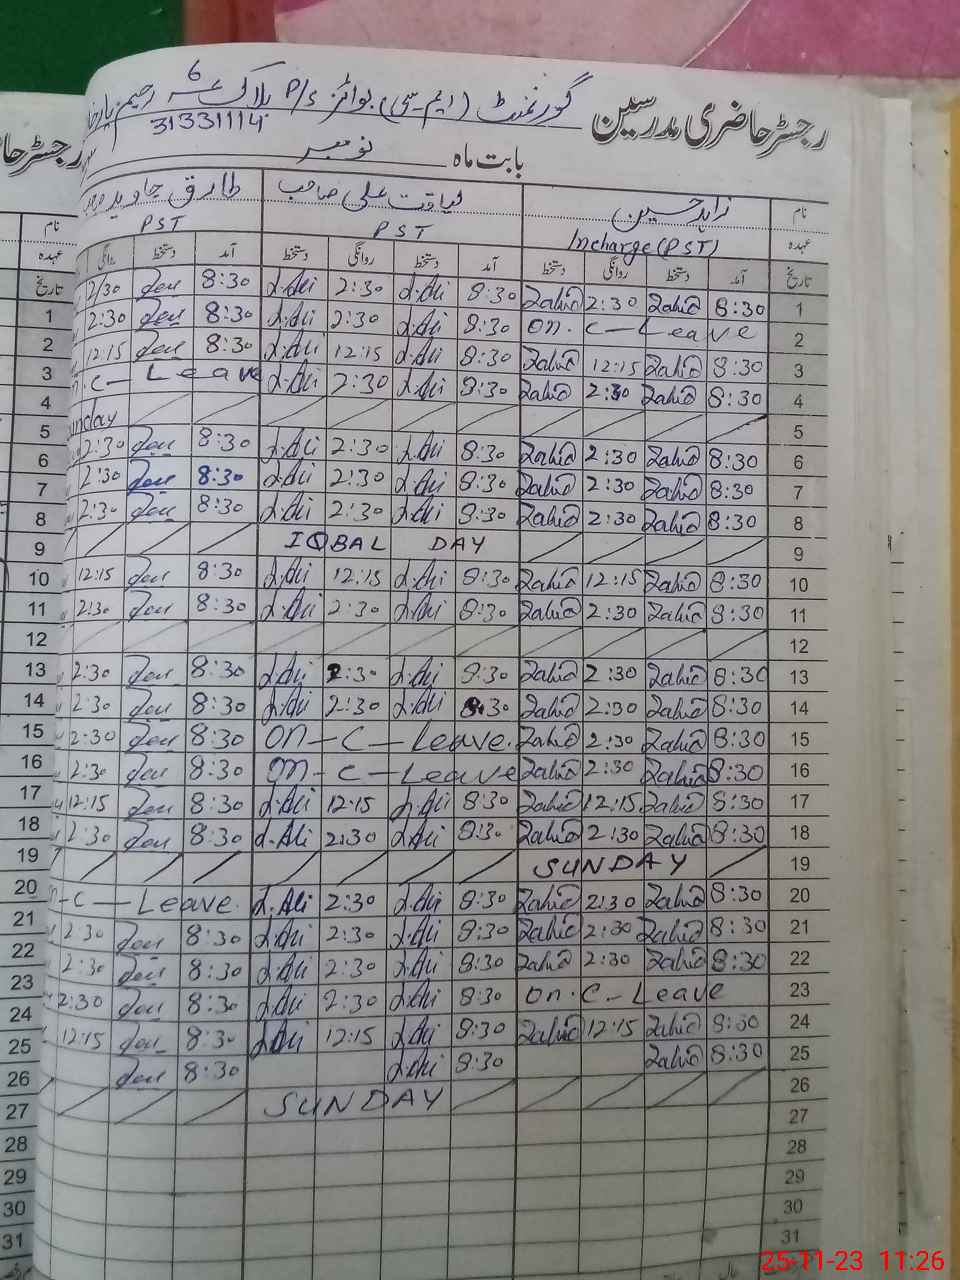 رجسٹر حاضری مدرسین گورنمنٹ (ایم سی) بوائز P/S بلاک 6 رحیم یار
31331114
بابت ماہ نومبر
نام زاہد حسین لیاقت علی صاحب طارق جاوید
عہدہ Incharge (PST) PST PST
تاریخ آمد دستخط روانگی دستخط آمد دستخط روانگی دستخط آمد دستخط روانگی
1 8:30 Zahid 2:30 Zahid 8:30 L.Ali 2:30 L.Ali 8:30 2:30
2 on.C-Leave 8:30 L.Ali 2:30 L.Ali 8:30 2:30
3 8:30 Zahid 12:15 Zahid 8:30 L.Ali 12:15 L.Ali 8:30 12:15
4 8:30 Zahid 2:30 Zahid 8:30 L.Ali 2:30 L.Ali C-Leave
5
6 8:30 Zahid 2:30 Zahid 8:30 L.Ali 2:30 L.Ali 8:30 2:30
7 8:30 Zahid 2:30 Zahid 8:30 L.Ali 2:30 L.Ali 8:30 2:30
8 8:30 Zahid 2:30 Zahid 8:30 L.Ali 2:30 L.Ali 8:30 2:30
9 IQBAL DAY
10 8:30 Zahid 12:15 Zahid 8:30 L.Ali 12:15 L.Ali 8:30 12:15
11 8:30 Zahid 2:30 Zahid 8:30 L.Ali 2:30 L.Ali 8:30 2:30
12
13 8:30 Zahid 2:30 Zahid 8:30 L.Ali 2:30 L.Ali 8:30 2:30
14 8:30 Zahid 2:30 Zahid 8:30 L.Ali 2:30 L.Ali 8:30 2:30
15 8:30 Zahid 2:30 Zahid on-C-Leave. 8:30 2:30
16 8:30 Zahid 2:30 Zahid on-C-Leave 8:30 2:30
17 8:30 Zahid 12:15 Zahid 8:30 L.Ali 12:15 L.Ali 8:30 12:15
18 8:30 Zahid 2:30 Zahid 8:30 L.Ali 2:30 L.Ali 8:30 2:30
19 SUNDAY
20 8:30 Zahid 2:30 Zahid 8:30 L.Ali 2:30 L.Ali C-Leave.
21 8:30 Zahid 2:30 Zahid 8:30 L.Ali 2:30 L.Ali 8:30 2:30
22 8:30 Zahid 2:30 Zahid 8:30 L.Ali 2:30 L.Ali 8:30 2:30
23 on.C-Leave 8:30 L.Ali 2:30 L.Ali 8:30 2:30
24 8:30 Zahid 12:15 Zahid 8:30 L.Ali 12:15 L.Ali 8:30 12:15
25 8:30 Zahid 8:30 L.Ali 8:30
26 SUNDAY
27
28
29
30
31
25-11-23 11:26